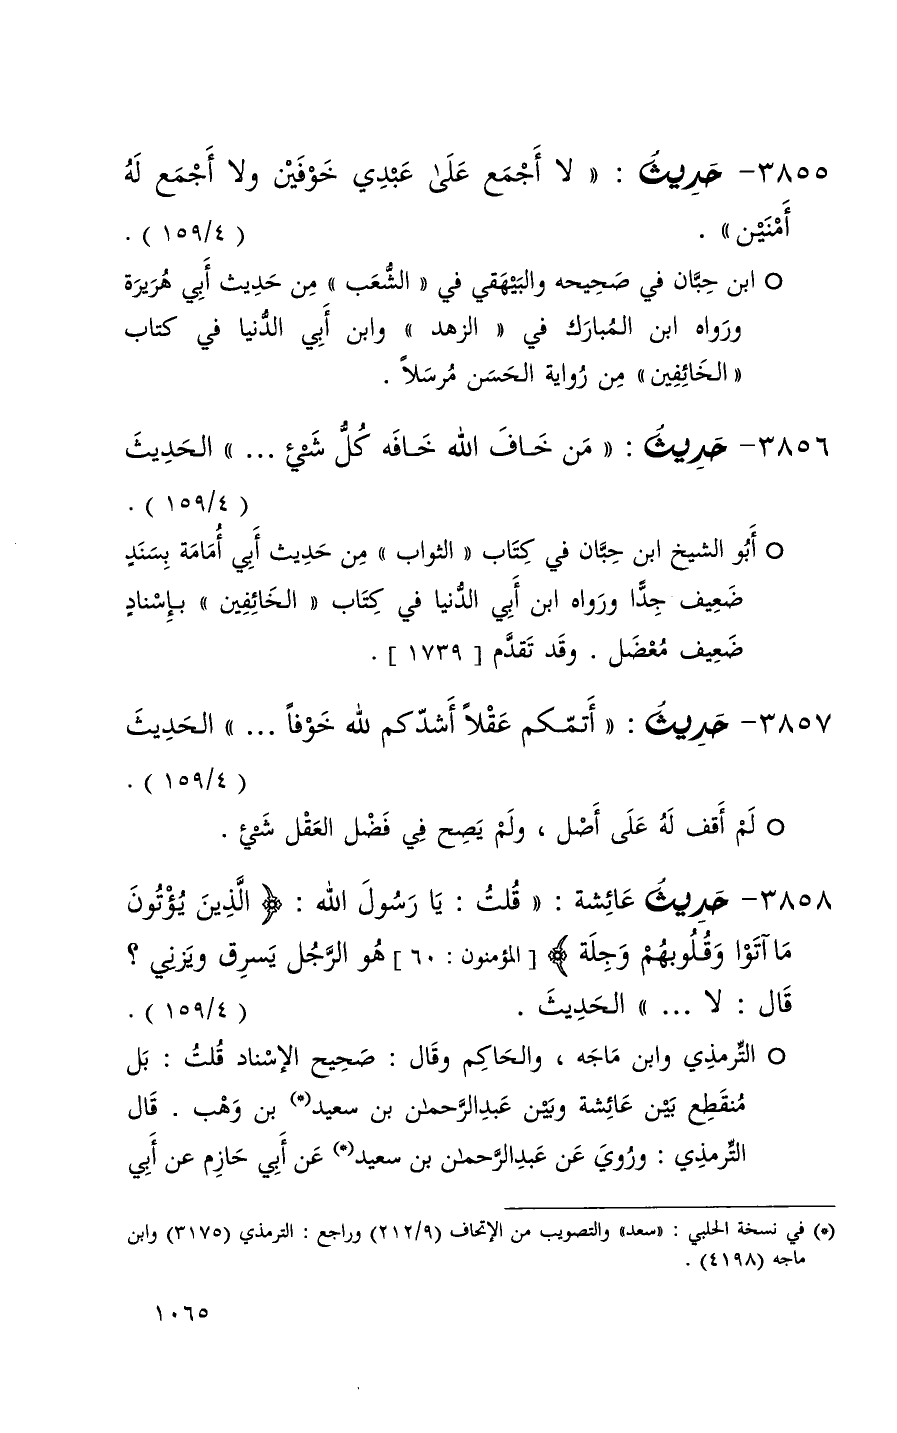 ٣٨٥٥- حَدِيثُ : « لا أَجْمَع عَلَىٰ عَبْدِي خَوْفَيْن ولا أَجْمَع لَهُ
أَمْنَيْن » . ( ١٥٩/٤ ) .
○ ابن حِبَّان في صَحيحه والبَيْهَقي في « الشُّعَب » مِن حَدِيث أَبِي هُرَيرَة
ورَواه ابن المُبارَك في « الزهد » وابن أَبِي الدُّنيا في كتاب
« الخَائِفِين » مِن رُواية الحَسَن مُرسَلاً .
٣٨٥٦- حَدِيثَ : « مَن خَـافَ الله خَـافَه كُلُّ شَيْءٍ ... » الحَدِيثَ
( ١٥٩/٤ ) .
○ أَبُو الشيخ ابن حِبَّان في كِتَاب « الثواب » مِن حَدِيث أَبِي أُمَامَة بِسَنَدٍ
ضَعِيف جِدًّا ورَواه ابن أَبِي الدُّنيا في كِتَاب « الخَائِفِين » بـإِسْنادٍ
ضَعِيف مُعْضَل . وقَد تَقدَّم [ ١٧٣٩ ] .
٣٨٥٧- حَدِيثُ : « أَتمّـكم عَقْلاً أَشدّكم لله خَوْفاً ... » الحَدِيثَ
( ١٥٩/٤ ) .
○ لَمْ أَقف لَهُ عَلَى أَصْل ، ولَمْ يَصِح فِي فَضْل العَقْل شَيْءٍ .
٣٨٥٨- حَدِيثُ عَائِشة : « قُلتُ : يَا رَسُولَ الله : ﴿ الَّذِينَ يُؤْتُونَ
مَا آتَوْا وَقُلُوبهُمْ وَجِلَة ﴾ [ المؤمنون : ٦٠ ] هُو الرَّجُل يَسرِق ويَزنِي ؟
قَال : لا ... » الحَدِيثَ . ( ١٥٩/٤ ) .
○ التِّرمذِي وابن مَاجَه ، والحَاكِم وقَال : صَحِيح الإسْناد قُلتُ : بَل
مُنقَطِع بَيْن عَائِشة وبَيْن عَبدِالرَّحمـٰن بن سعيد(*) بن وَهْب . قَال
التِّرمذِي : ورُويَ عَن عَبدِالرحمـٰن بن سعيد(*) عَن أَبِي حَازِم عن أَبِي
(*) في نسخة الحلبي : «سعد» والتصويب من الإتحاف (٢١٢/٩) وراجع : الترمذي (٣١٧٥) وابن
ماجه (٤١٩٨) .
١٠٦٥